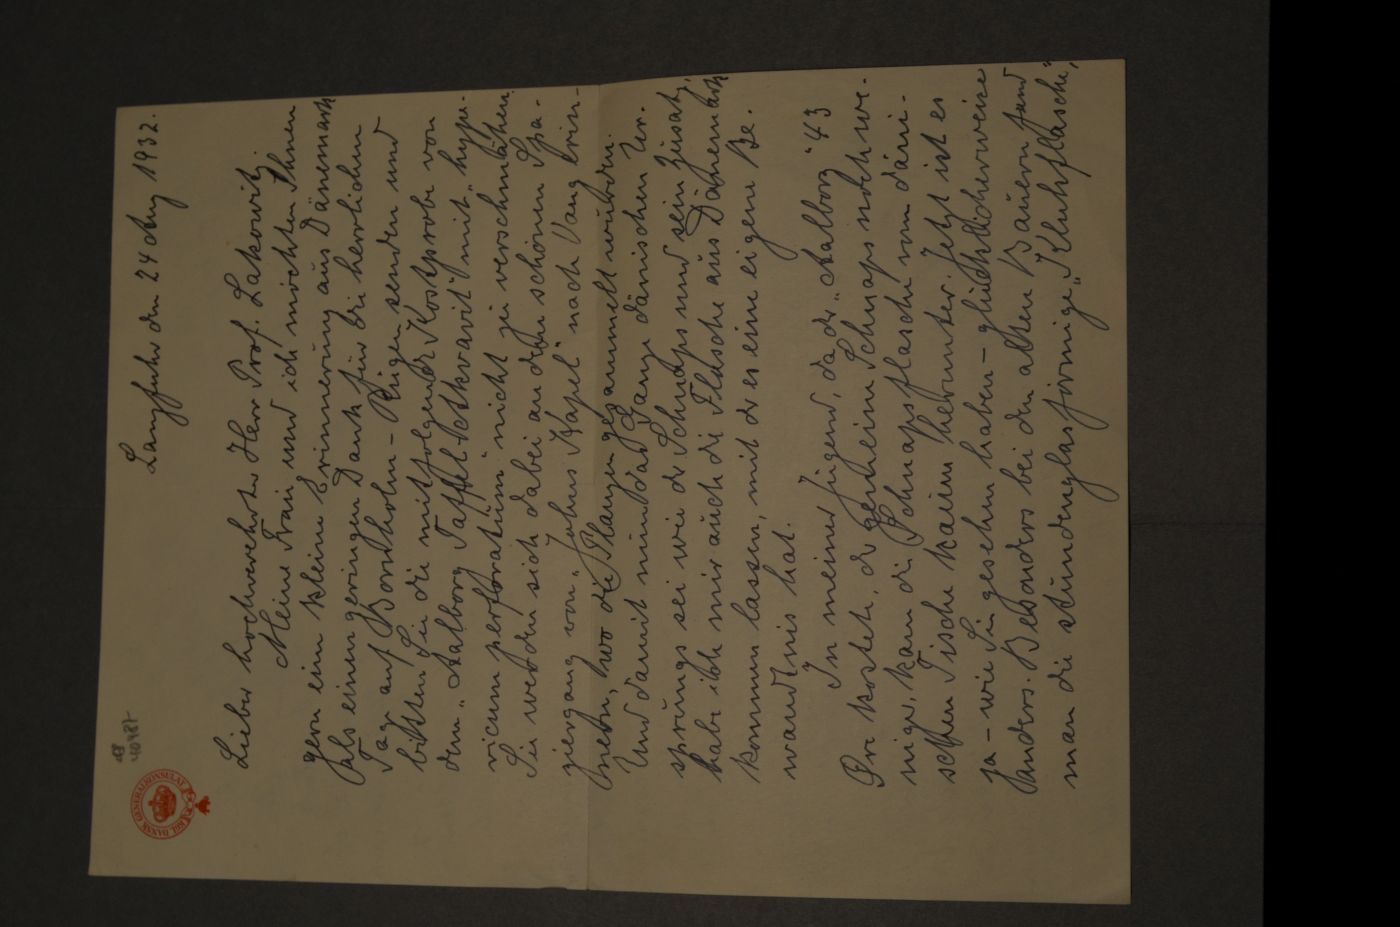 KGL. DANSK GENERALKONSULAT
Langfuhr den 24 Aug 1932.
Lieber hochverehrter Herr Prof. Lakowitz,
Meine Frau und ich möchten Ihnen
gern eine kleine Erinnerung aus Dänemark
als einen geringen Dank für die herrlichen
Tage auf Bornholm-Rügen senden und
bitten Sie die mitfolgende Kostprobe von
dem "Aalborg Taffel-Akkvavit" mit "hype-
ricum perforatum" nicht zu verschmähen.
Sie werden sich dabei an den schönen Spa-
ziergang von "Johns Kapel" nach Vang erin-
nern, wo die Pflanzen gesammelt wurden.
Und damit nun das Ganze dänischen Ur-
sprungs sei wie der Schnaps und sein Zusatz,
habe ich mir auch die Flasche aus Dänemark
kommen lassen, mit der es eine eigene Be-
wandtnis hat.
In meiner Jugend, da der "Aalborg" 43
Øre kostete, der gemeine Schnaps noch we-
niger, kam die Schnapsflasche vom däni-
schen Tische kaum herunter. Jetzt ist es
ja - wie Sie gesehen haben - glücklicherweise
anders. Besonders bei den alten Bauern fand
man die stundenglasförmige "Klukflasche",